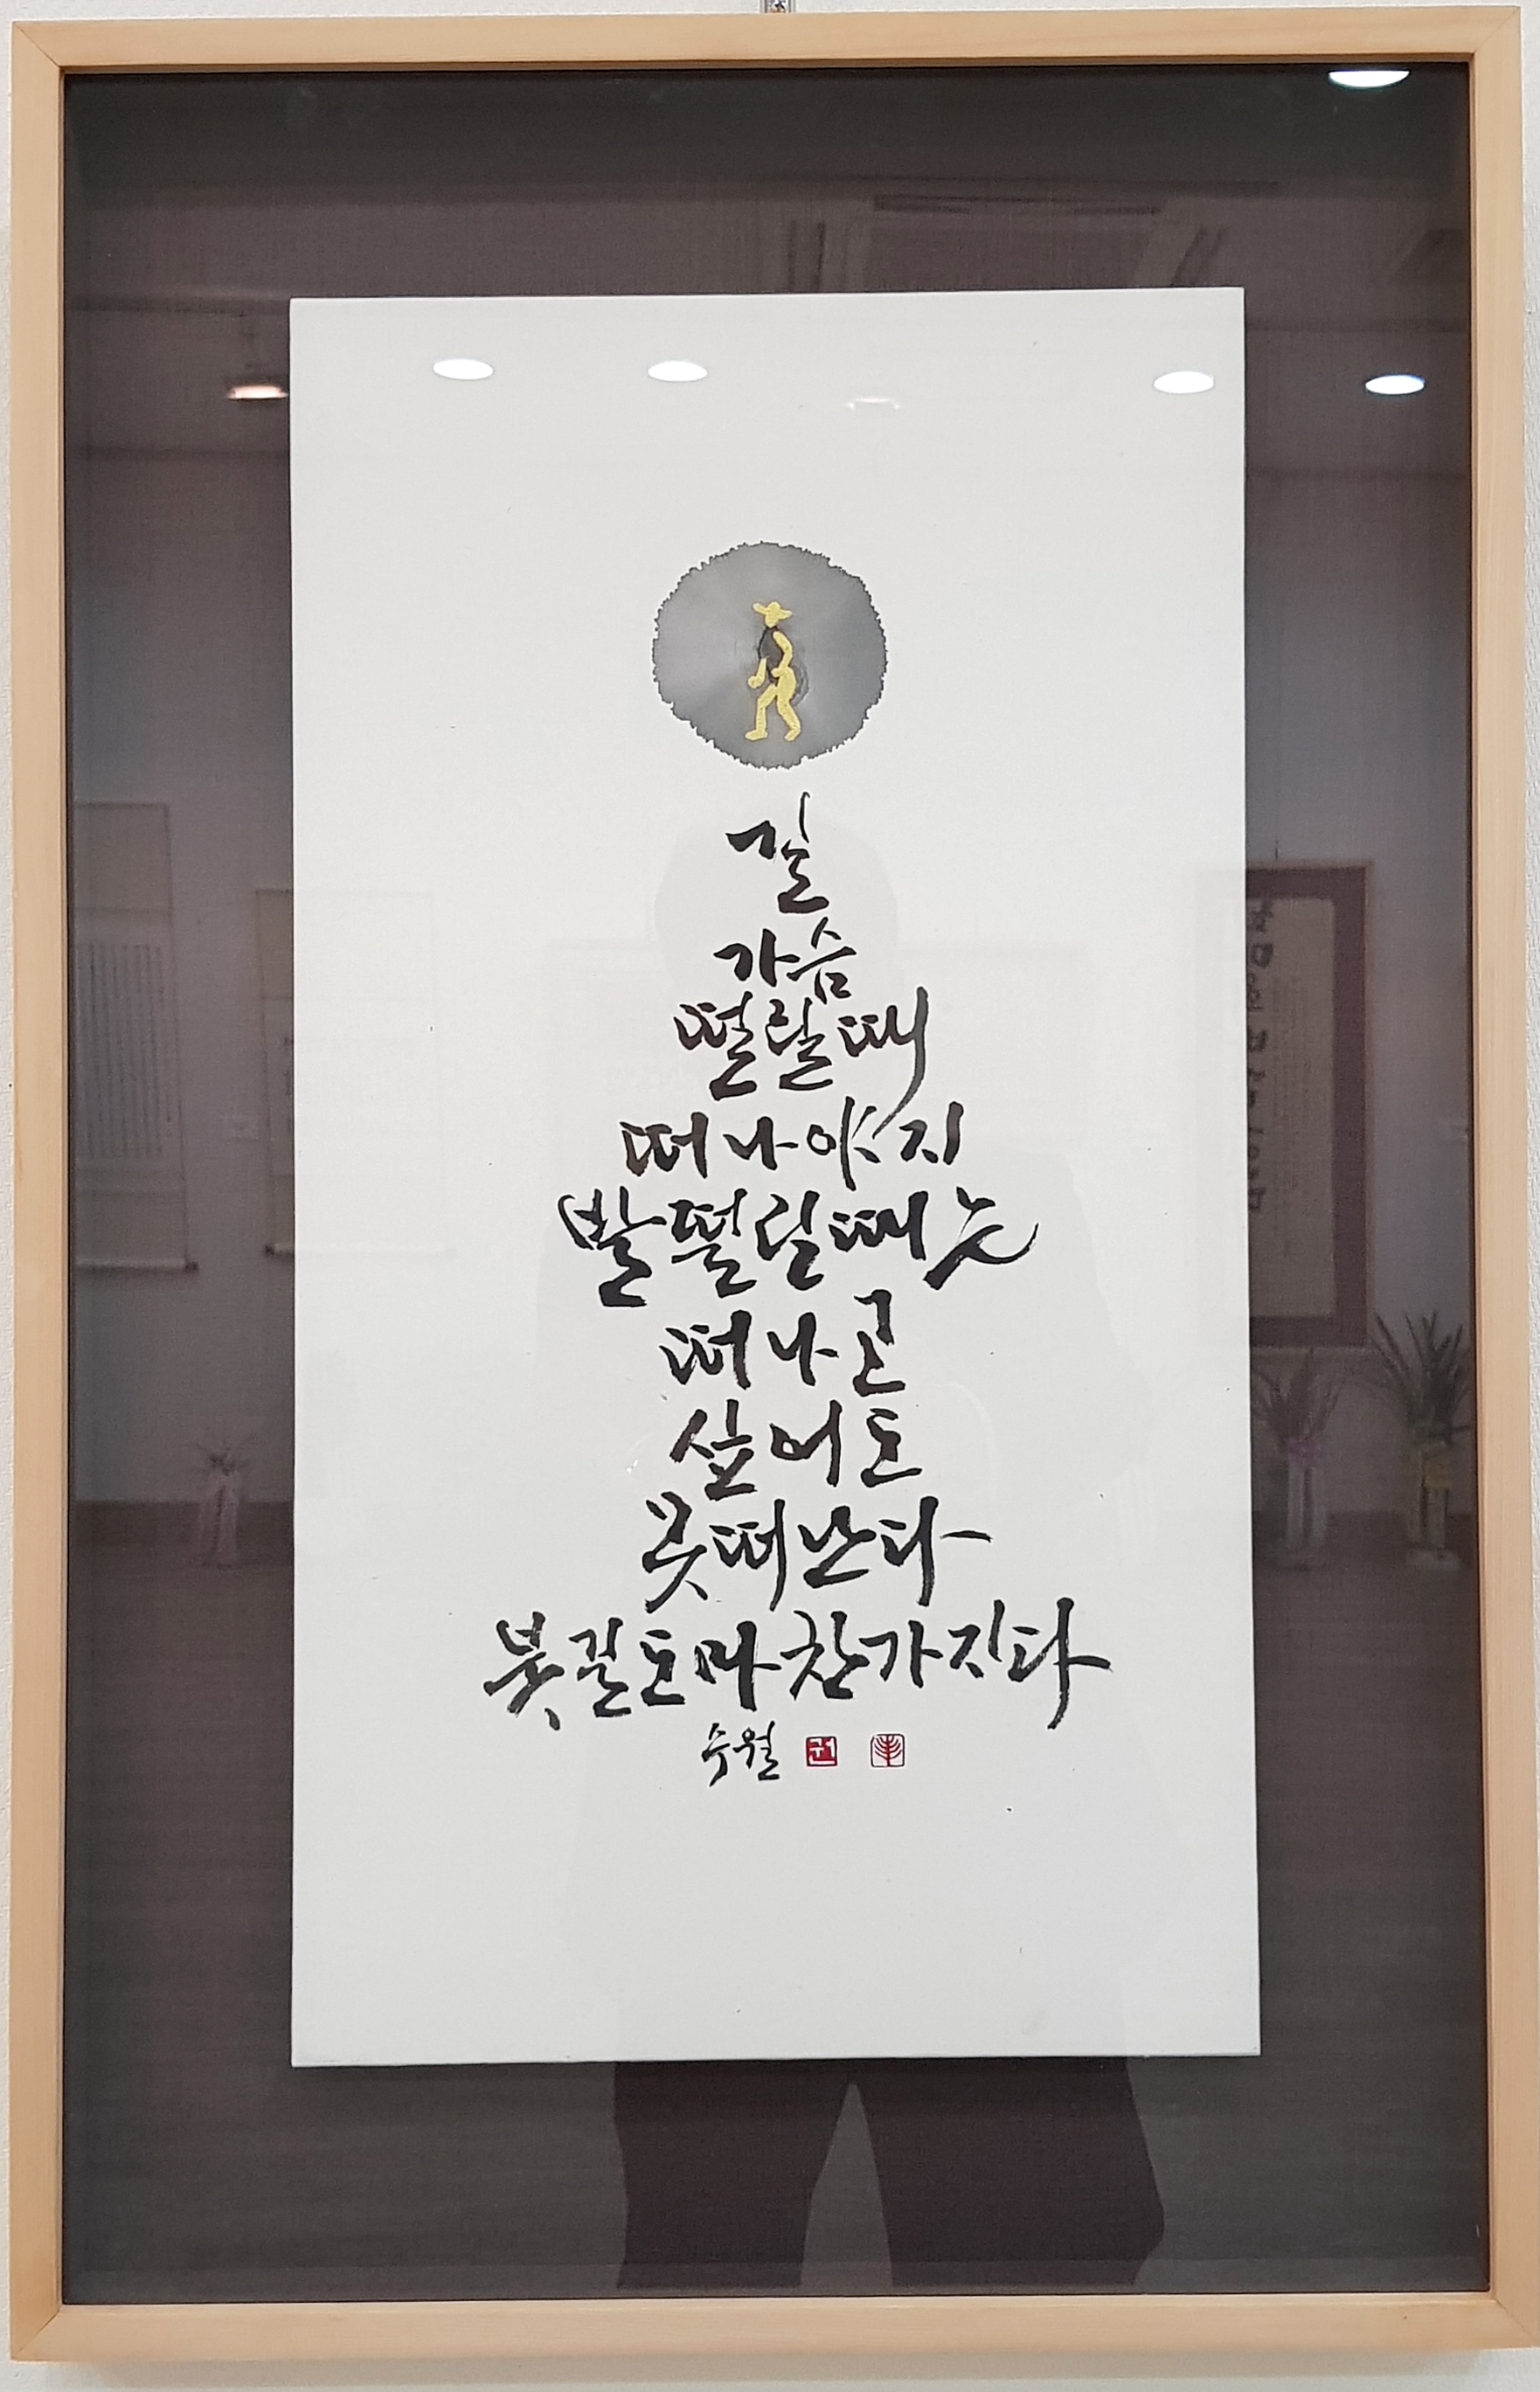 길
가슴
떨릴때
떠나야지
발떨릴때는
떠나고
싶어도
못떠난다
붓길도마찬가지다
수월